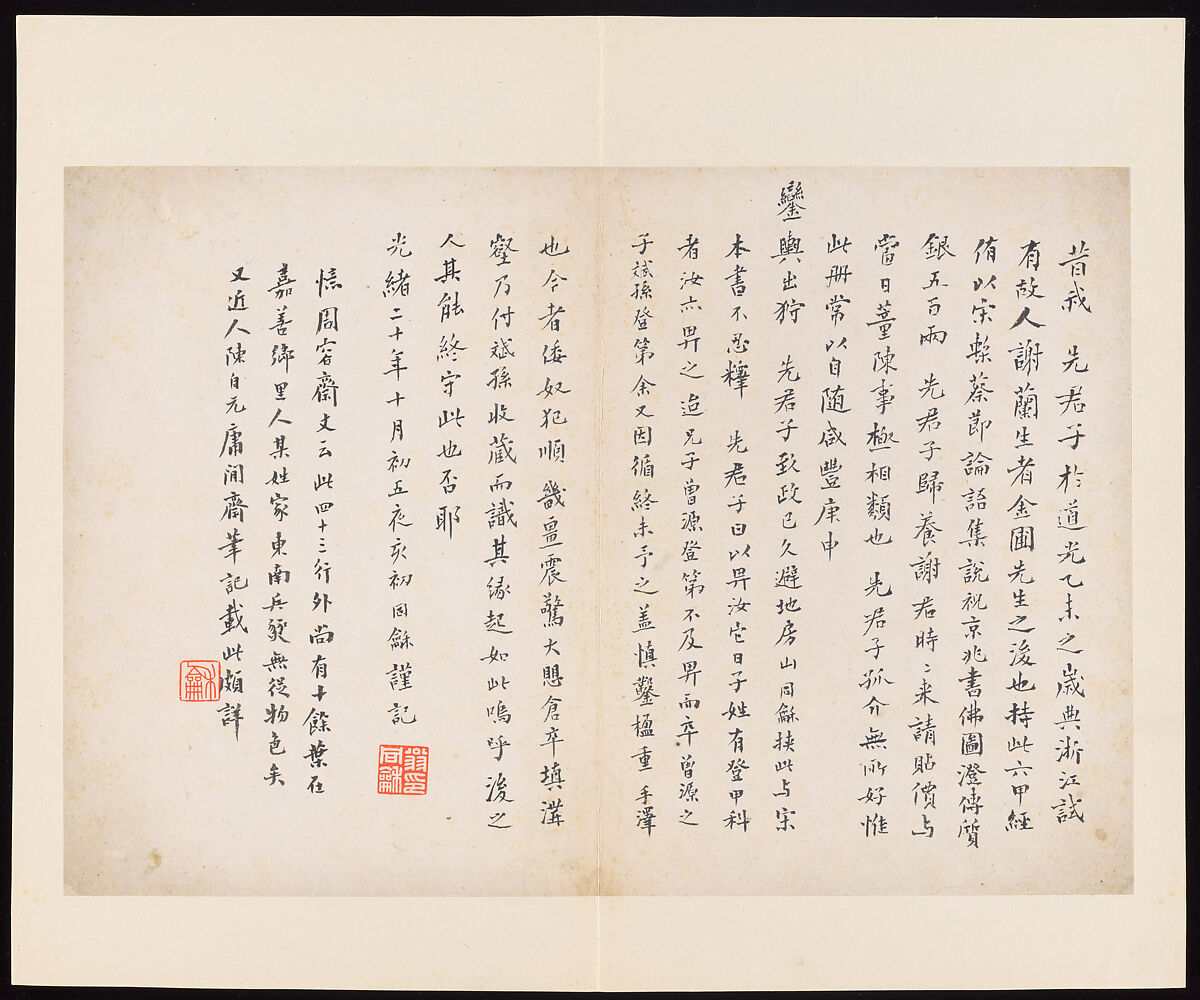 昔我 先君子於道光乙未之歲典浙江試
有故人謝蘭生者金圃先生之後也持此六甲經
侑以宋槧蔡節論語集說祝京兆書佛圖澄傳質
銀五百兩 先君子歸養謝君時〻來請貼價与
當日董陳事極相類也 先君子孤介無所好惟
此冊常以自隨咸豐庚申
鑾輿出狩 先君子致政已久避地房山同龢挾此与宋
本書不忍釋 先君子曰以畀汝它日子姓有登甲科
者汝亦畀之迨兄子曾源登第不及畀而卒曾源之
子斌孫登第余又因循終未予之蓋慎鑿楹重手澤
也今者倭奴犯順畿畺震驚大懼倉卒填溝
壑乃付斌孫收藏而識其緣起如此嗚呼後之
人其能終守此也否耶
光緒二十年十月初五夜亥初同龢謹記
翁同龢印
憶周容齋文云此四十三行外尚有十餘葉在
嘉善鄉里人某姓家東南兵燹無從物色矣
又近人陳自元庸閒齋筆記載此頗詳